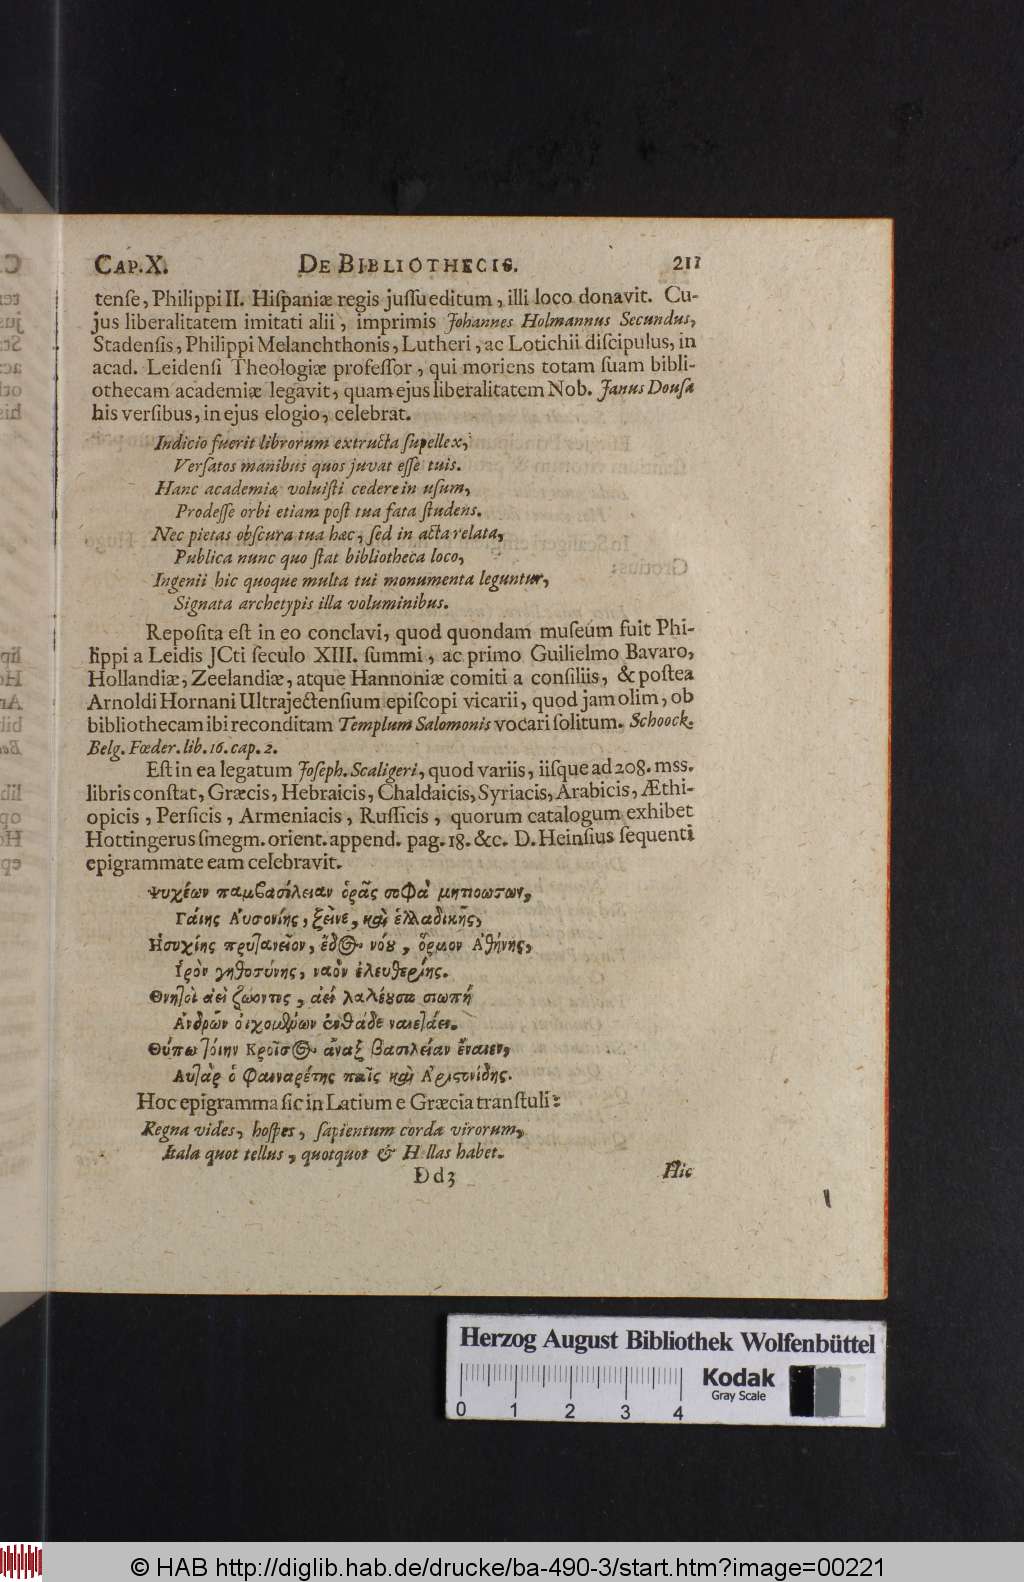 CAP. X. DE BIBLIOTHECIS. 211
tenſe, Philippi II. Hiſpaniæ regis juſſu editum, illi loco donavit. Cu-
jus liberalitatem imitati alii, imprimis Johannes Holmannus Secundus,
Stadenſis, Philippi Melanchthonis, Lutheri, ac Lotichii diſcipulus, in
acad. Leidenſi Theologiæ profeſſor, qui moriens totam ſuam bibli-
othecam academiæ legavit, quam ejus liberalitatem Nob. Janus Douſa
his verſibus, in ejus elogio, celebrat.
Indicio fuerit librorum extructa ſupellex,
Verſatos manibus quos juvat eſſe tuis.
Hanc academiæ voluiſti cedere in uſum,
Prodeſſe orbi etiam poſt tua fata ſtudens.
Nec pietas obſcura tua hæc, ſed in acta relata,
Publica nunc quo ſtat bibliotheca loco,
Ingenii hic quoque multa tui monumenta leguntur,
Signata archetypis illa voluminibus.
Repoſita eſt in eo conclavi, quod quondam muſeum fuit Phi-
lippi a Leidis JCti ſeculo XIII. ſummi, ac primo Guilielmo Bavaro,
Hollandiæ, Zeelandiæ, atque Hannoniæ comiti a conſiliis, & poſtea
Arnoldi Hornani Ultrajectenſium epiſcopi vicarii, quod jam olim, ob
bibliothecam ibi reconditam Templum Salomonis vocari ſolitum. Schoock.
Belg. Fœder. lib. 16. cap. 2.
Eſt in ea legatum Joſeph. Scaligeri, quod variis, iisque ad 208. mss.
libris conſtat, Græcis, Hebraicis, Chaldaicis, Syriacis, Arabicis, Æthi-
opicis, Perſicis, Armeniacis, Ruſſicis, quorum catalogum exhibet
Hottingerus ſmegm. orient. append. pag. 18. &c. D. Heinſius ſequenti
epigrammate eam celebravit.
Ψυχέων παμβασίλειαν ὁρᾶς σοφὰ μητιοωσων,
Γαίης Αὐσονίης, ξεῖνε, καὶ ἑλλαδικῆς,
Ἡσυχίης πρυτανεῖον, ἕδος νόου, ὅρμον Ἀθήνης,
Ἱρὸν γηθοσύνης, ναὸν ἐλευθερίης.
Θνητοὶ ἀεὶ ζώοντες, ἀεὶ λαλέουσα σιωπὴ
Ἀνδρῶν οἰχομένων ἐνθάδε ναιετάει.
Οὔπω τόιην Κροῖσος ἄναξ βασιλείαν ἔναιεν,
Αὐτὰρ ὁ Φαιναρέτης παῖς καὶ Ἀριστονίδης.
Hoc epigramma ſic in Latium e Græcia tranſtuli:
Regna vides, hoſpes, ſapientum corda virorum,
Itala quot tellus, quotquot & Hellas habet.
Dd3 Hic
Herzog August Bibliothek Wolfenbüttel
Kodak
Gray Scale
0 1 2 3 4
© HAB http://diglib.hab.de/drucke/ba-490-3/start.htm?image=00221